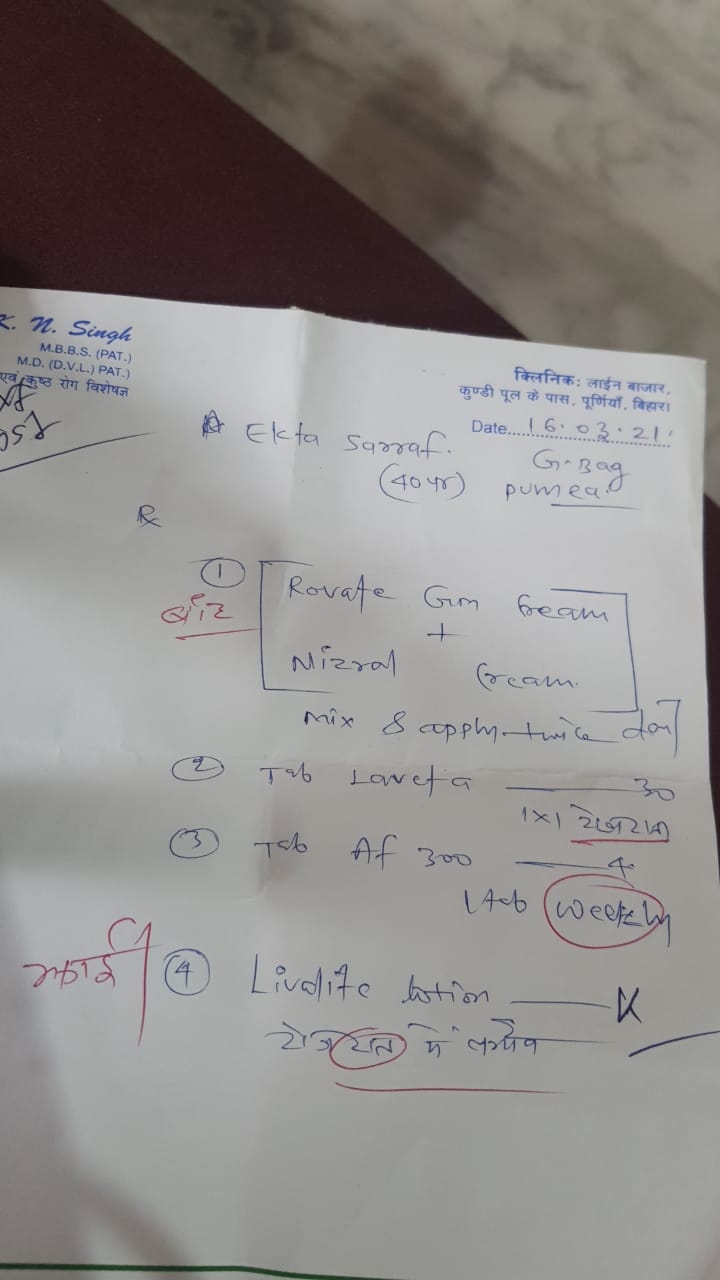 K. N. Singh
M.B.B.S. (PAT.)
M.D. (D.V.L.) PAT.)
एवं कुष्ठ रोग विशेषज्ञ
क्लिनिक: लाईन बाजार,
कुण्डी पूल के पास, पूर्णियाँ, बिहार।
Date.....16.03.21.
Ekta Sarraf.
(40 yr)
G. Bag
purnea.
Rx
1
Rovate Gm Cream
+
Nizral Cream.
mix & apply twice daily
2 Tab Laveta 30
1x1 रोज रात
3 Tab Af 300 4
1 tab weekly
झाई 4 Livalite lotion
रोज रात में लगावे